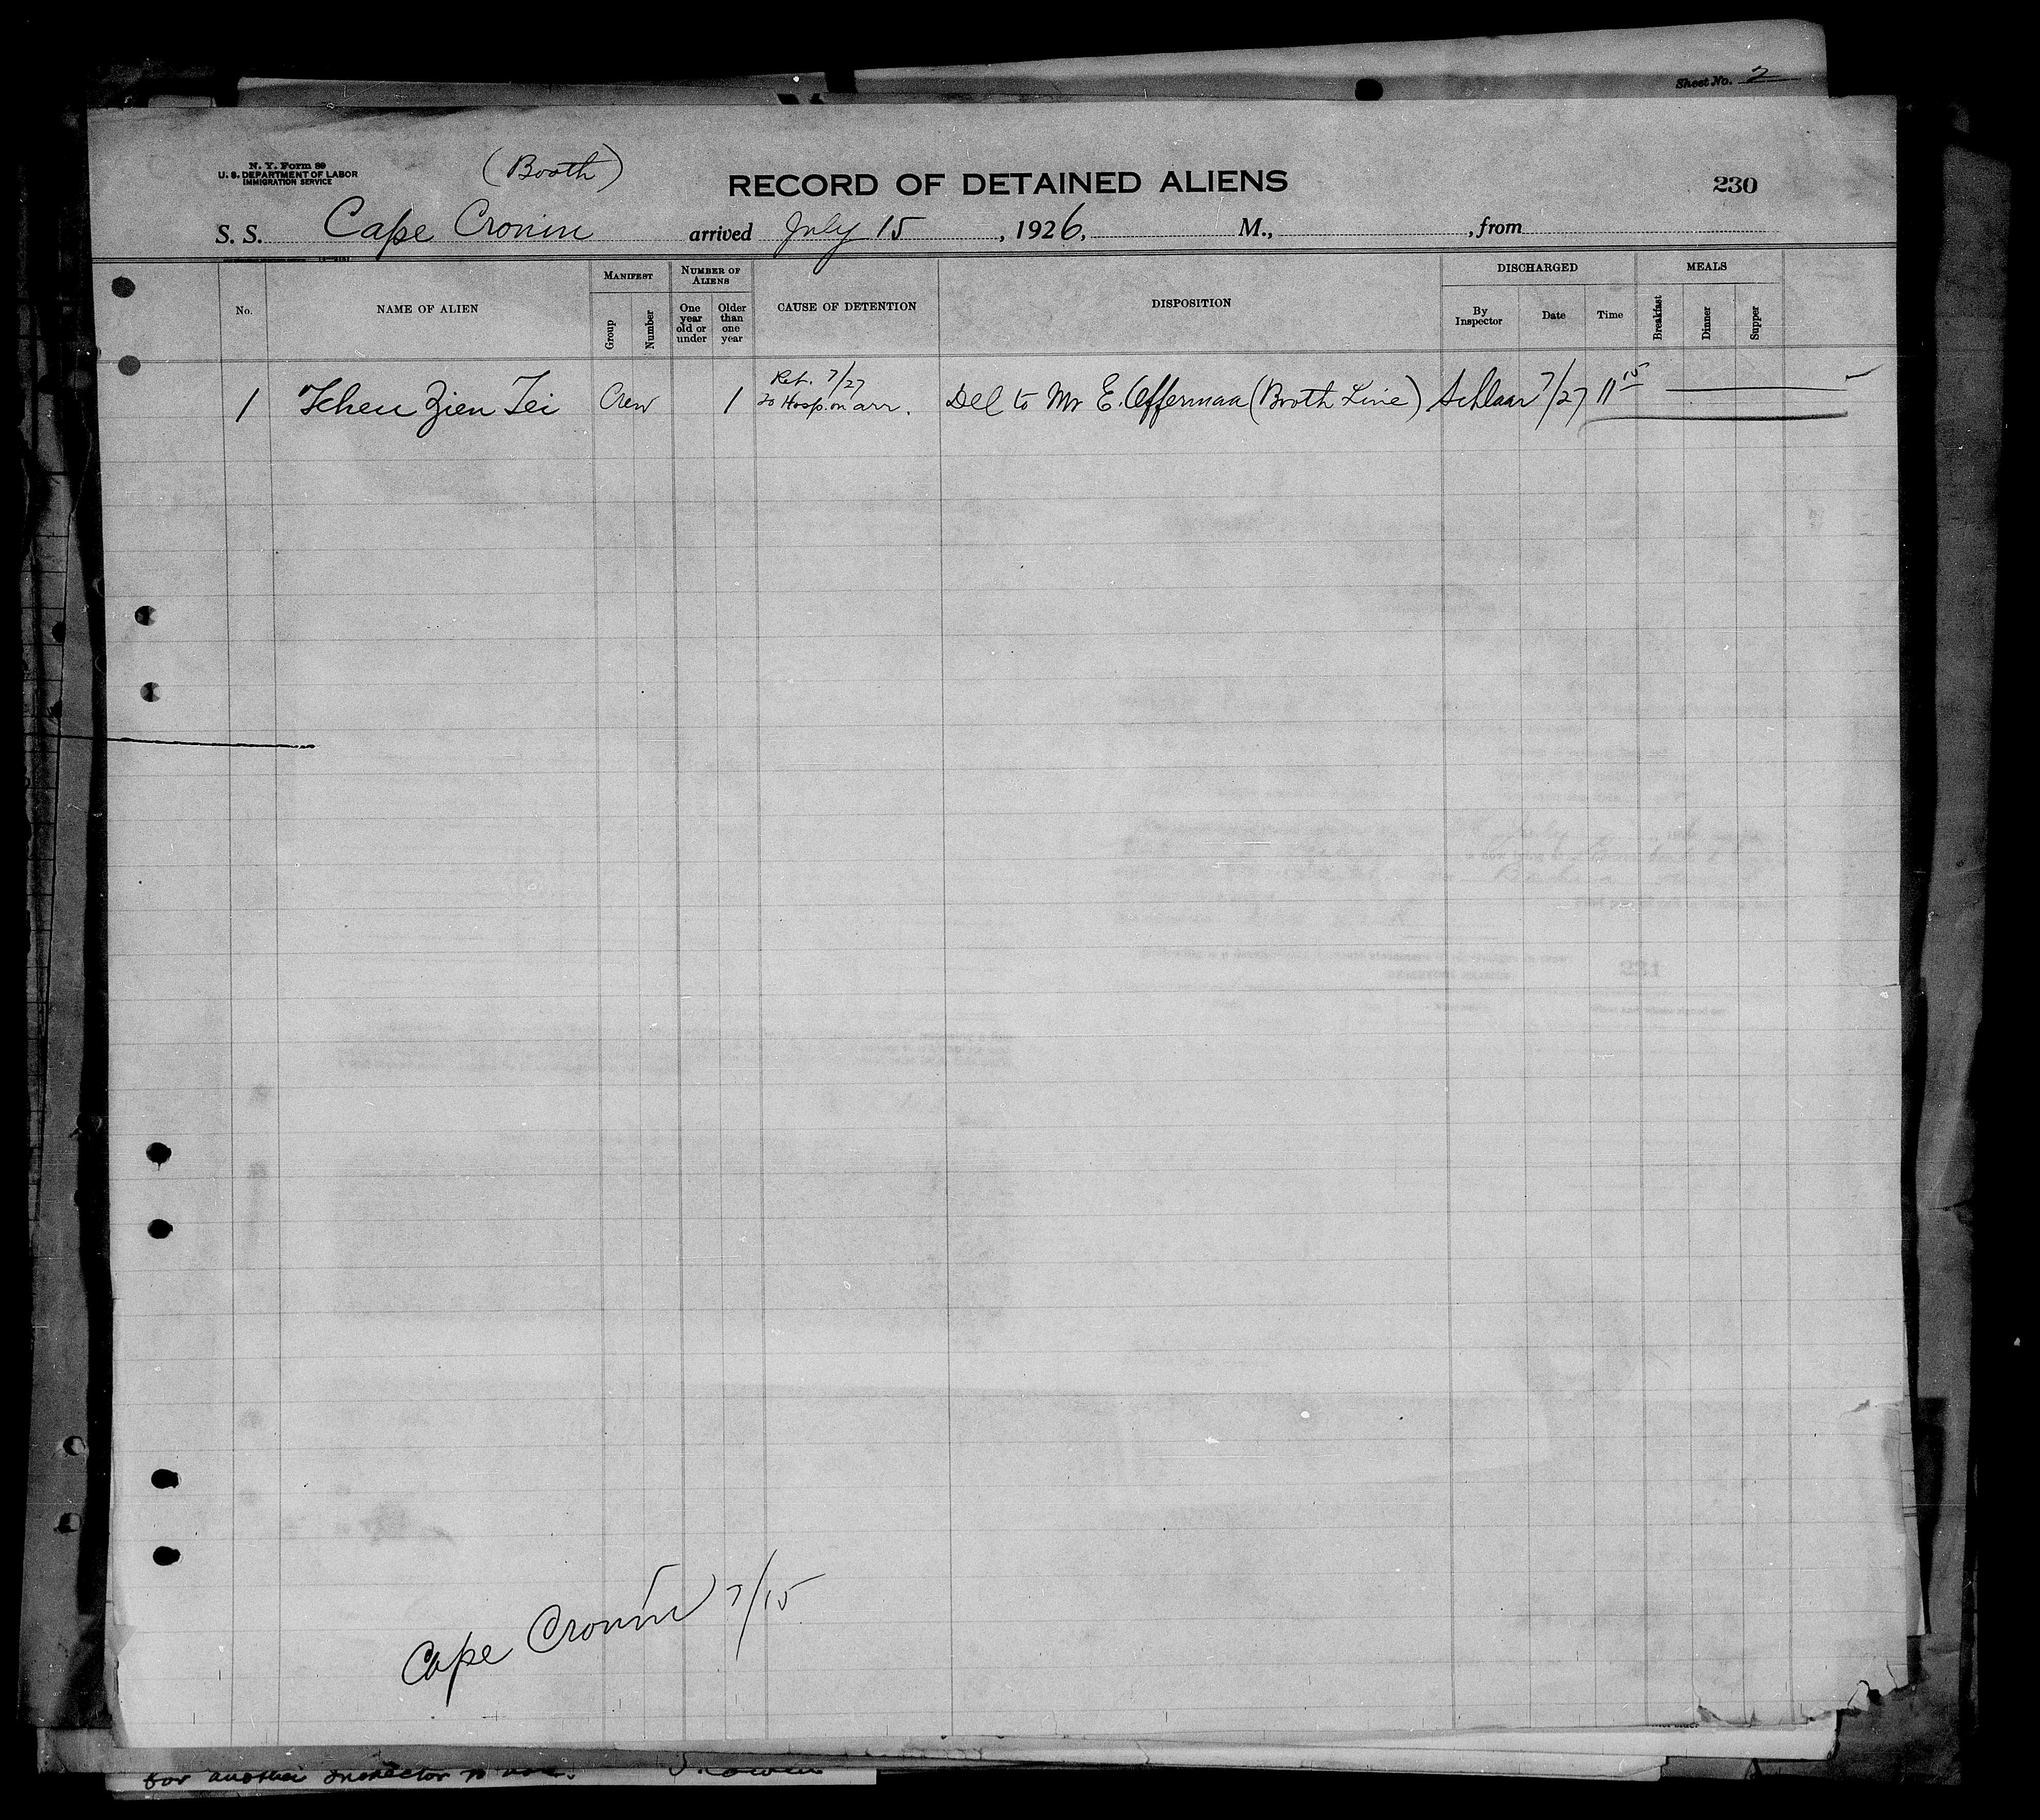 Sheet No. 2
N. Y. Form 89
U. S. DEPARTMENT OF LABOR
IMMIGRATION SERVICE
(Booth)
RECORD OF DETAINED ALIENS
230
S. S. Cape Cronin arrived July 15, 1926, M., , from
No.
NAME OF ALIEN
MANIFEST
Group
Number
NUMBER OF ALIENS
One year old or under
Older than one year
CAUSE OF DETENTION
DISPOSITION
DISCHARGED
By Inspector
Date
Time
MEALS
Breakfast
Dinner
Supper
Ret. 7/27
1 Tcheu Zien Tei Crew 1 to Hosp. on arr. Del to Mr E. Offermaa (Booth Line) Schlaar 7/27 11 15
231
Cape Cronin 7/15
for another Inspector